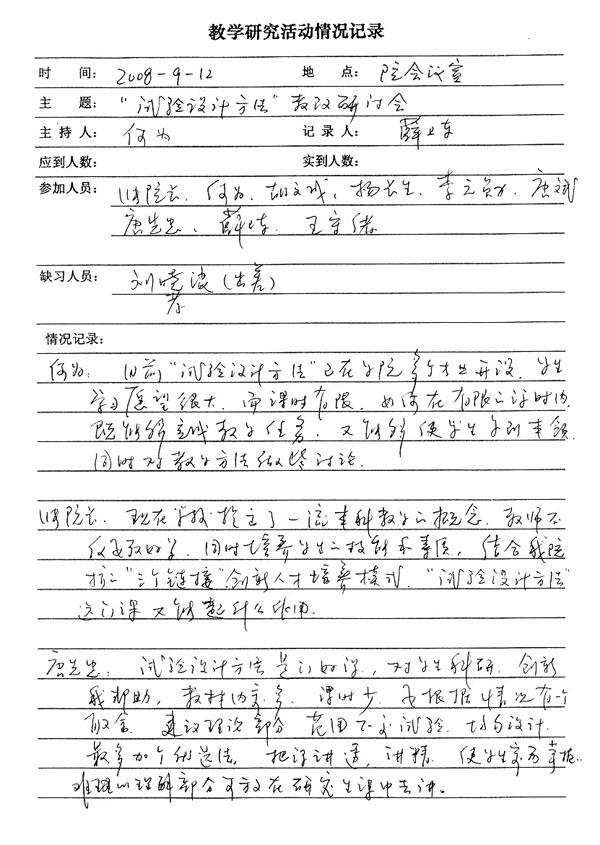 教学研究活动情况记录
时 间： 2008-9-12 地 点： 院会议室
主 题： "试验设计方法"教改研讨会
主 持 人： 何为 记 录 人： 薛卫东
应到人数： 实到人数：
参加人员： 院长、何为、胡文成、杨长生、李元勋、唐斌
唐先忠、薛卫东、王守绪
缺习人员： 刘孝波（出差）
情况记录：
何为： 目前"试验设计方法"已在学院多个专业开设，学生
学习愿望很大，而课时有限，如何在有限的课时内
既能够完成教学任务，又能够使学生学到本领
同时对教学方法做些讨论.
院长. 现在学校提出了一流本科教学的概念. 教师不
仅要教好书，同时培养学生的技能和素质，结合我院
的"三个链接"创新人才培养模式. "试验设计方法"
这门课又能起什么作用.
唐先忠： 试验设计方法是门好课，对学生科研、创新
很有帮助，教材内容多，课时少，要根据情况有个
取舍. 建议理论部分范围不变试验、均匀设计.
最多加个优选法，把课讲透，讲精. 使学生容易掌握..
难理的理解部分可放在研究生课中去讲.